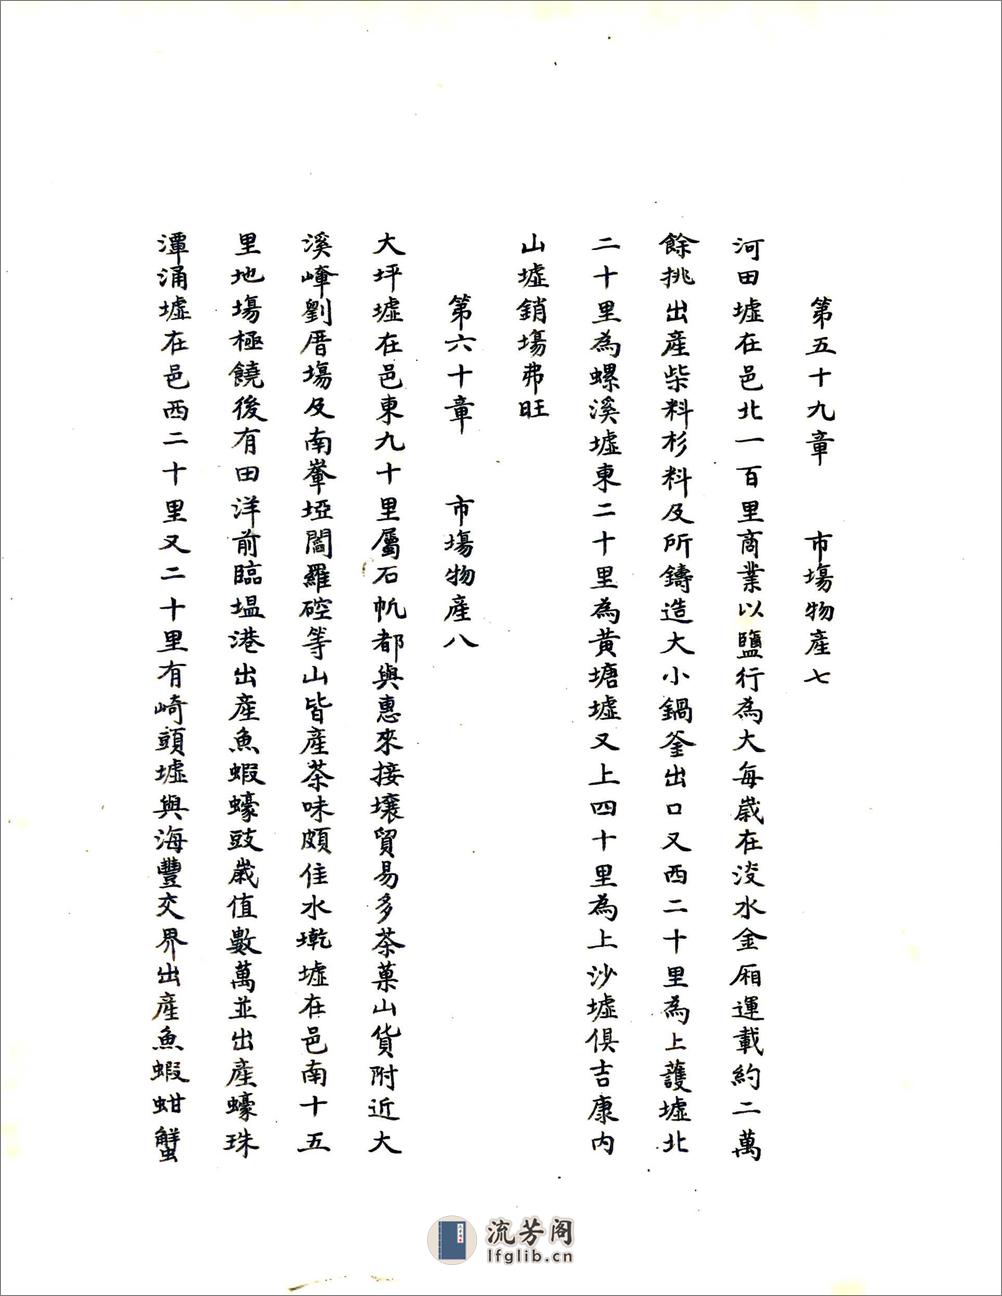 第五十九章 市塲物產七
河田墟在邑北一百里商業以鹽行為大每歲在淡水金廂運載約二萬
餘挑出產柴料杉料及所鑄造大小鍋釜出口又西二十里為上護墟北
二十里為螺溪墟東二十里為黃塘墟又上四十里為上沙墟俱吉康內
山墟銷塲弗旺
第六十章 市塲物產八
大坪墟在邑東九十里屬石帆都與惠來接壤貿易多茶菓山貨附近大
溪嶂劉厝塲及南輋埡閻羅硿等山皆產茶味頗佳水墘墟在邑南十五
里地塲極饒後有田洋前臨塭港出產魚蝦蠔豉歲值數萬並出產蠔珠
潭涌墟在邑西二十里又二十里有崎頭墟與海豐交界出產魚蝦蚶蟹
流芳阁
lfglib.cn